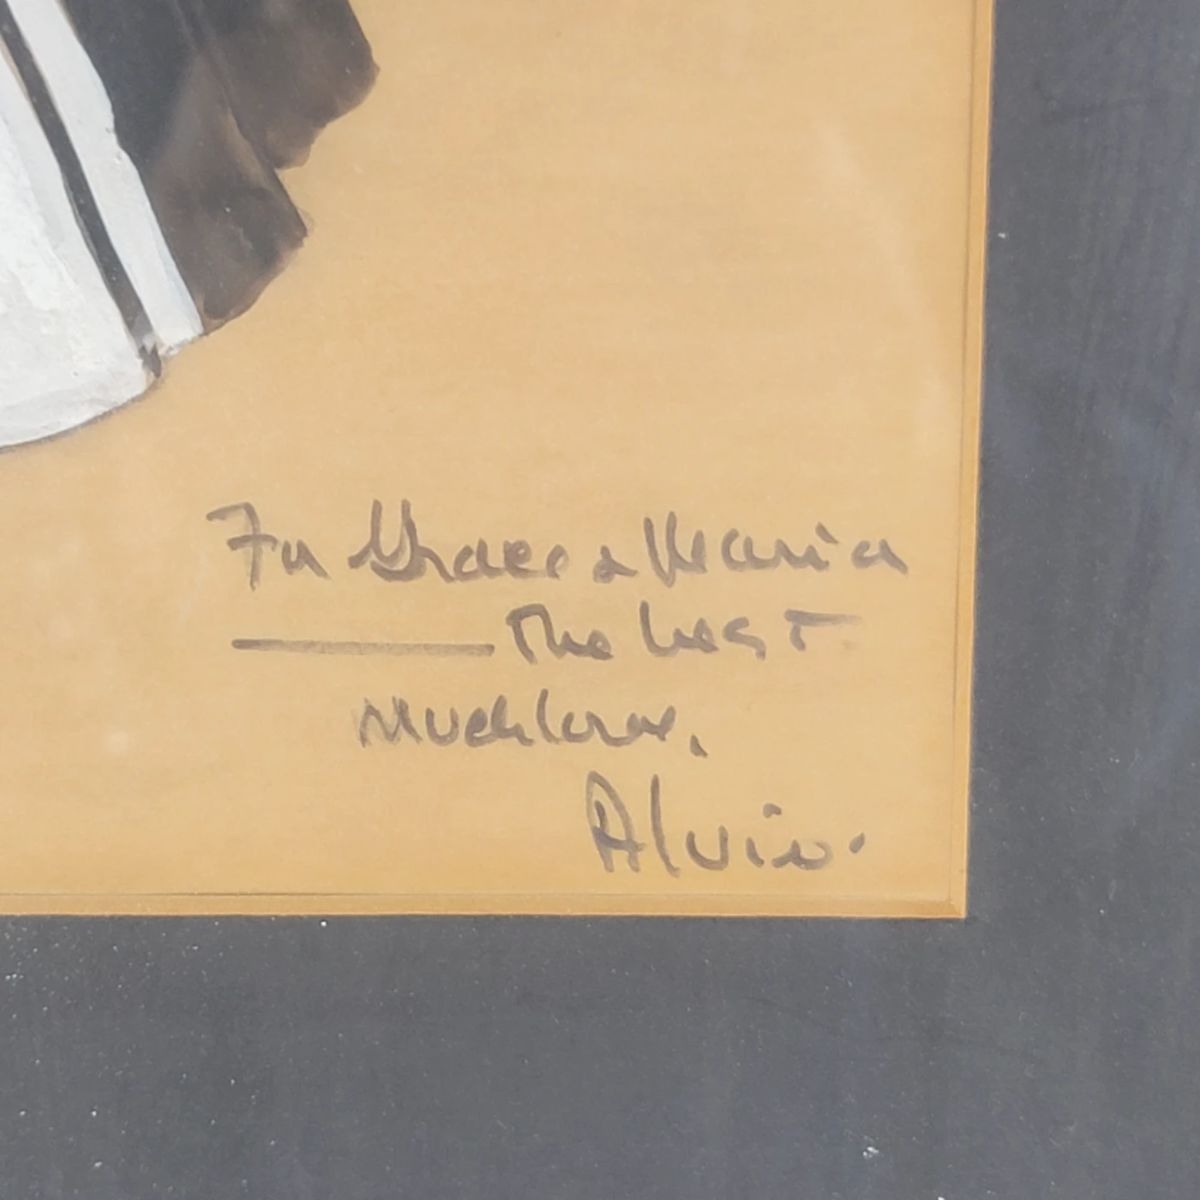 For Grace & Maria
— The best
Much love.
Alvin.